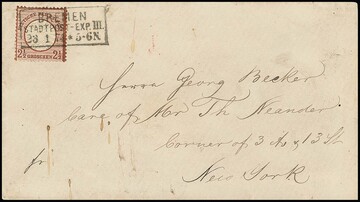 BREMEN
STADTPOST-EXP. III.
23 1 * 5-6N
2½ GROSCHEN 2½
Herrn Georg Becker
Care of Mr Th. Neander
Corner of 3 Av & 13 St
fr.
New York